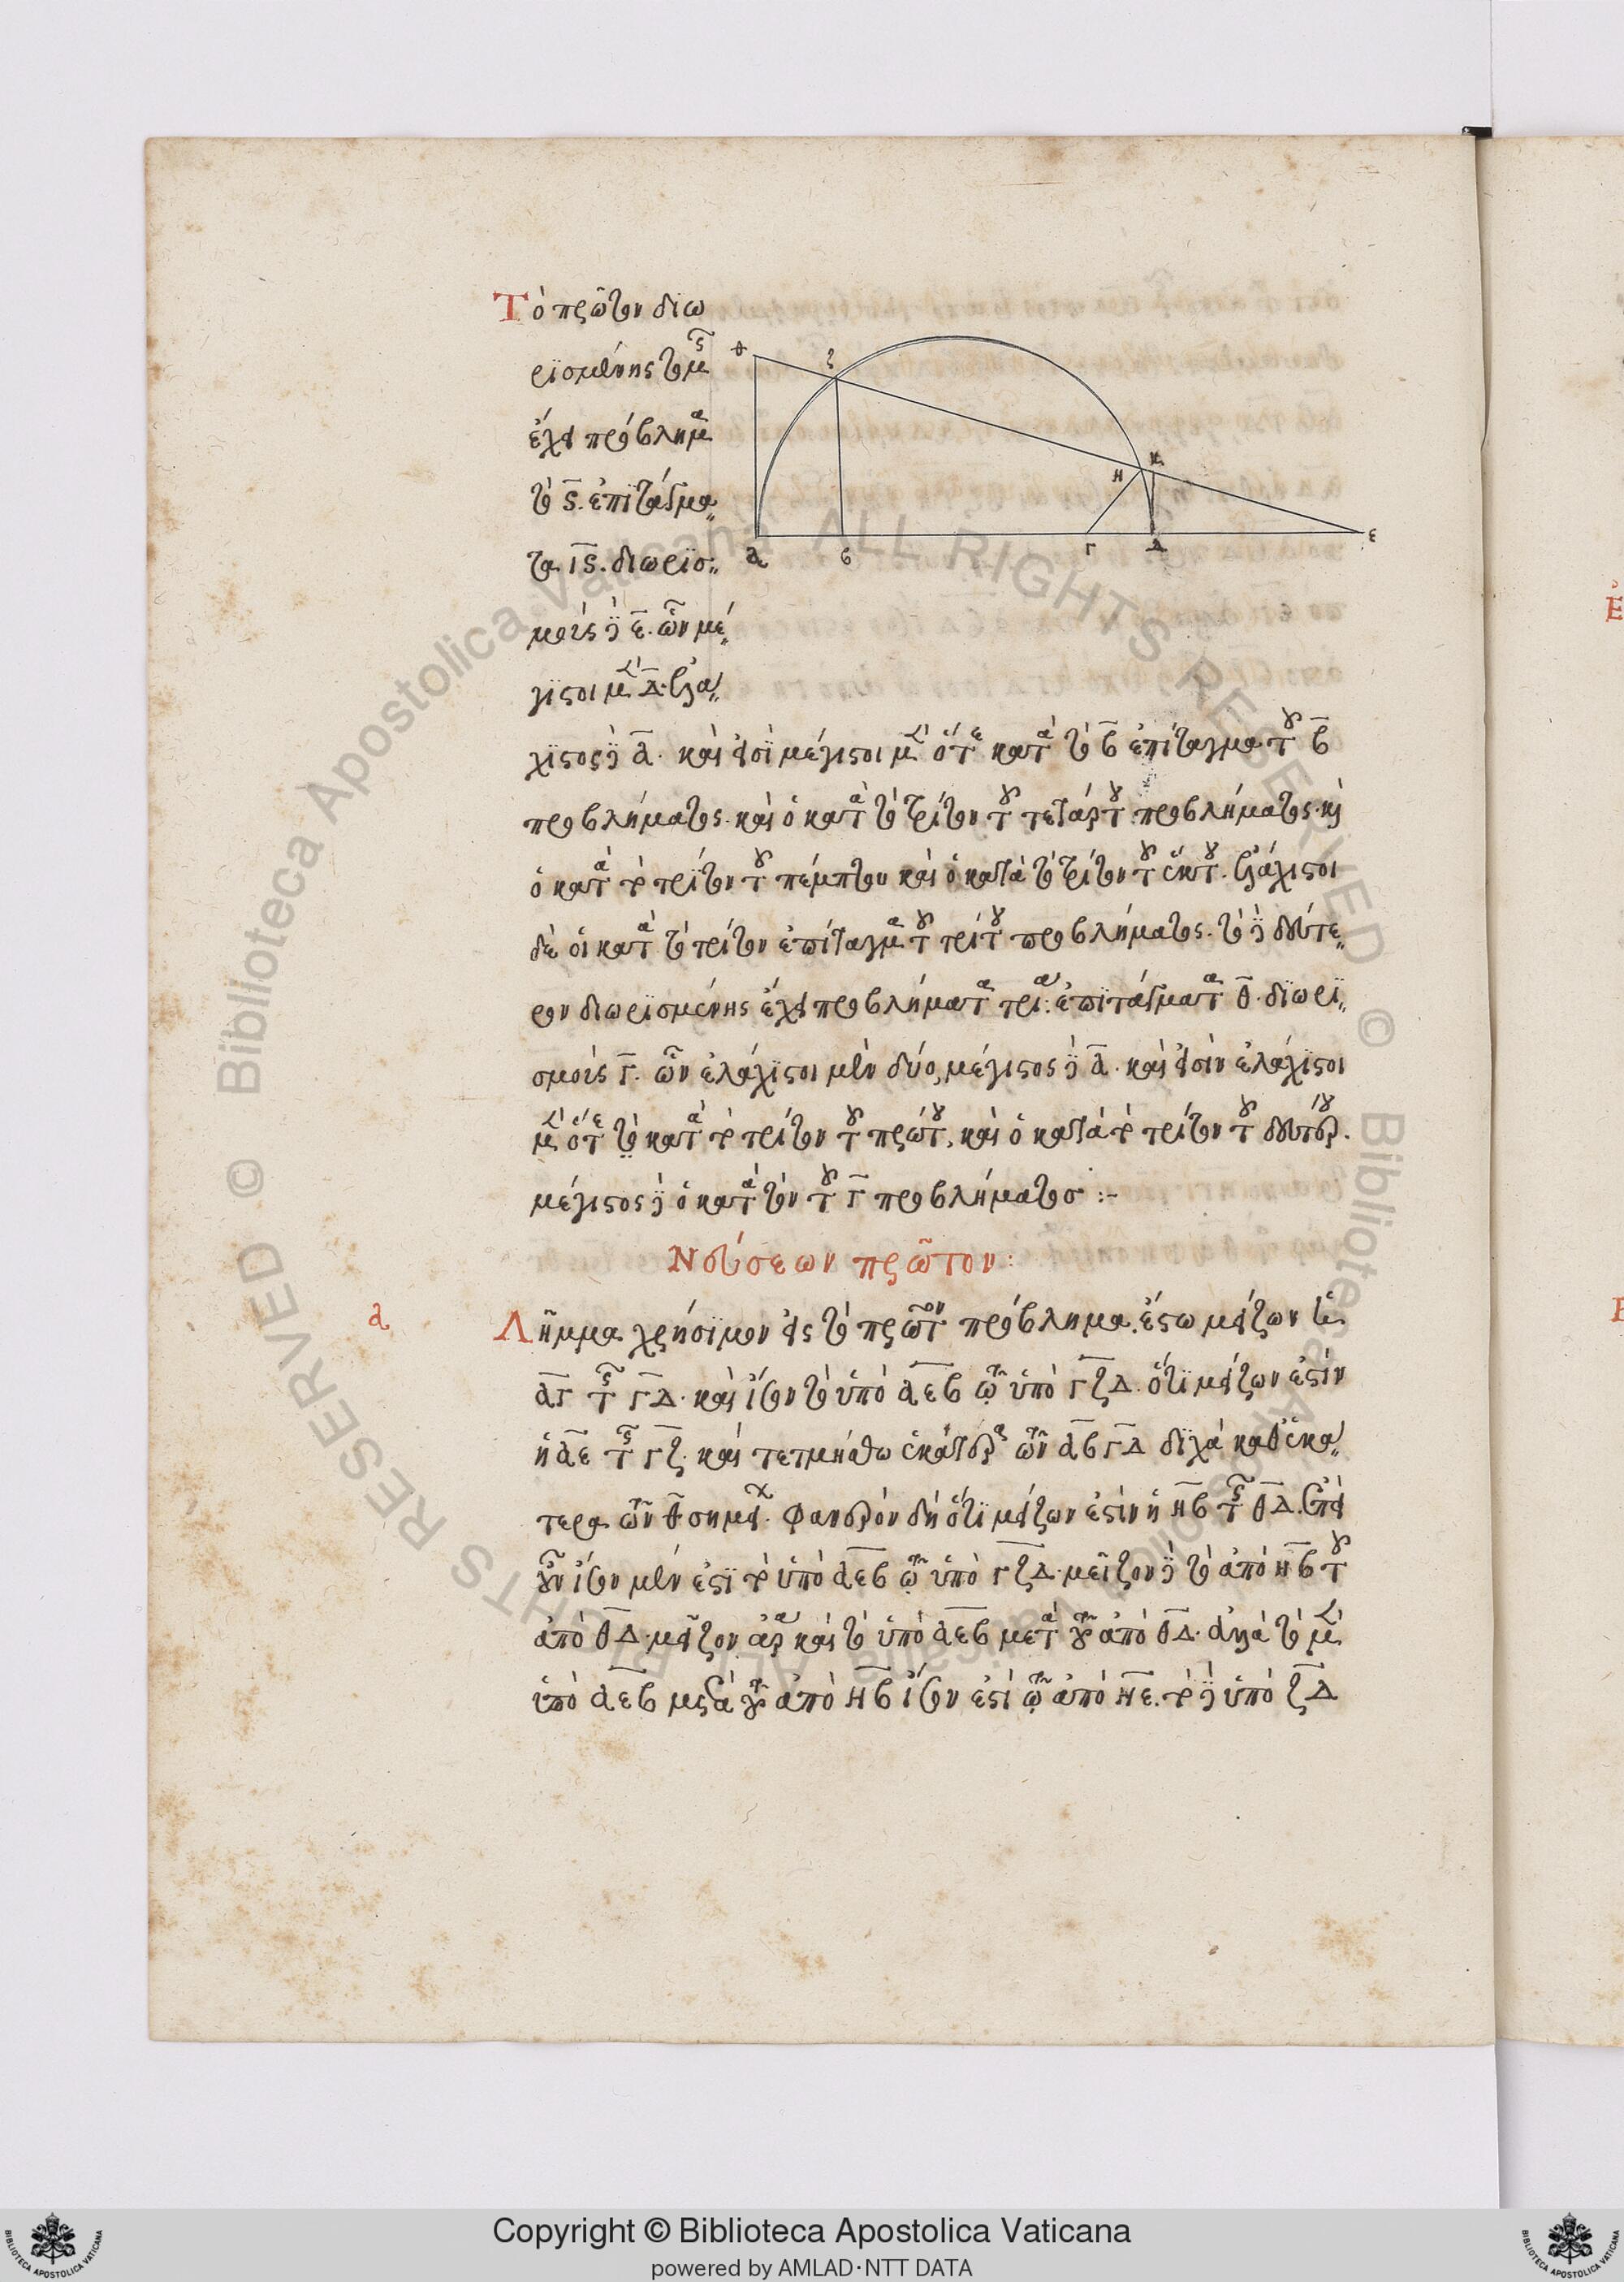 Τὸ πρῶτον διω
ρϊσμένης τομῆς
ἔχει πρόβλημα
τὰ ς̅. ἐπϊτάγμα
τα ι̅ς̅. διωρϊσ
μοὺς δὲ ε̅. ὧν μέ
γιστοι μὲν Δ̅. ἐλά
χϊστος δὲ α̅. καὶ εἰσὶ μέγιστοι μὲν ὅ τε κατὰ τὸ β̅ ἐπίταγμα τοῦ β̅
προβλήματος. καὶ ὁ κατὰ τὸ τρίτον τοῦ τετάρτου προβλήματος. καὶ
ὁ κατὰ τὸ τρίτον τοῦ πέμπτου καὶ ὁ κατὰ τὸ τρίτον τοῦ ἕκτου. ἐλάχιστοι
δὲ οἱ κατὰ τὸ τρίτον ἐπίταγμα τοῦ τρίτου προβλήματος. τὸ δὲ δεύτε
ρον διωρϊσμένης ἔχει προβλήματα τρία. ἐπϊτάγματα θ̅. διωρϊ
σμοὺς γ̅. ὧν ἐλάχϊστοι μὲν δύο, μέγιστος δὲ α̅. καὶ εἰσὶν ἐλάχϊστοι
μὲν ὅ τε κατὰ τὸ τρίτον τοῦ πρώτου, καὶ ὁ κατὰ τὸ τρίτον τοῦ δευτέρου.
μέγιστος δὲ ὁ κατὰ τὸν τοῦ γ̅ προβλήματοσ :-
Νεύσεων πρῶτον:
α
Λῆμμα χρήσϊμον εἰς τὸ πρῶτον πρόβλημα. ἔστω μείζων ἡ
ΑΓ τῆς ΓΔ. καὶ ἴσον τὸ ὑπὸ ΑΕΒ τῷ ὑπὸ ΓΖΔ. ὅτϊ μείζων ἐστὶν
ἡ ΑΕ τῆς ΓΖ. καὶ τετμήσθω ἑκάτερα τῶν ΑΒ ΓΔ δίχα καθ ἑκά
τερα τῶν Θ̅ σημεῖα. φανερὸν δὴ ὅτϊ μείζων ἐστὶν ἡ ΗΒ τῆς ΘΔ. ἐπεὶ
οὖν ἴσον μέν ἐστϊ τὸ ὑπὸ ΑΕΒ τῷ ὑπὸ ΓΖΔ. μεῖζον δὲ τὸ ἀπὸ ΗΒ τοῦ
ἀπὸ ΘΔ. μεῖζον ἄρα καὶ τὸ ὑπὸ ΑΕΒ μετὰ τοῦ ἀπὸ ΘΔ. ἀλλὰ τὸ μὲν
ὑπὸ ΑΕΒ μετὰ τοῦ ἀπὸ ΗΒ ἴσον ἐστὶ τῷ ἀπὸ ΗΕ. τὸ δὲ ὑπὸ ΖΔ
Θ Ζ Η Κ
Α Β Γ Δ Ε
Copyright © Biblioteca Apostolica Vaticana
powered by AMLAD·NTT DATA